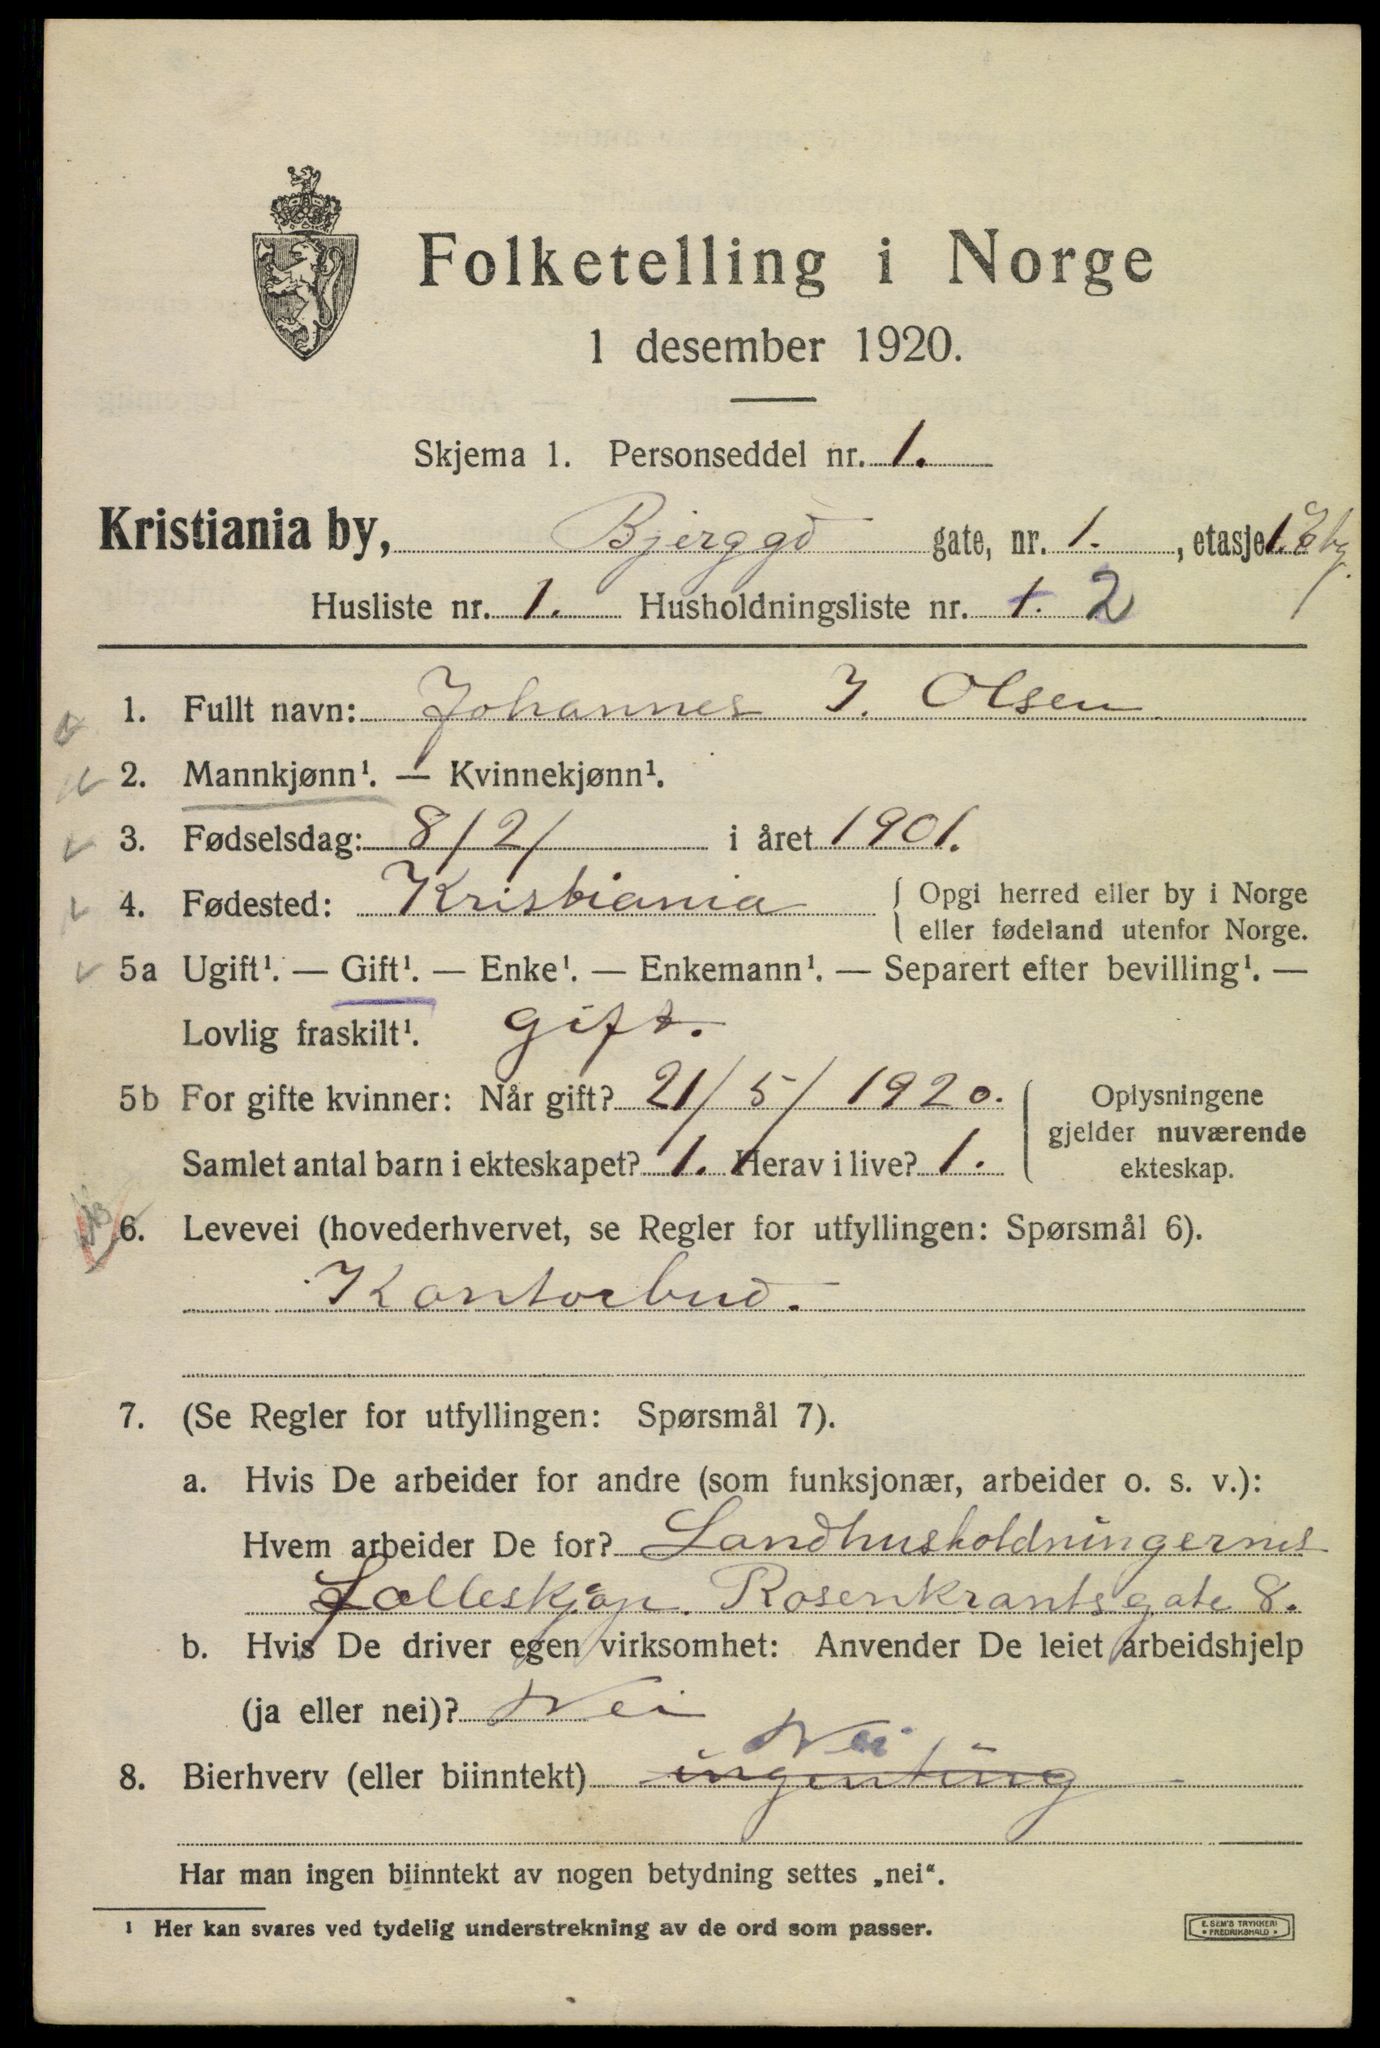 Folketelling i Norge
1 desember 1920.
Skjema 1. Personseddel nr. 1.
Kristiania by, Bjerggd gate, nr. 1. , etasje 1.
Husliste nr. 1. Husholdningsliste nr. 1. 2
1. Fullt navn: Johannes J. Olsen
2. Mannkjønn¹. — Kvinnekjønn¹.
3. Fødselsdag: 8/2/ i året 1901.
4. Fødested: Kristiania { Opgi herred eller by i Norge
eller fødeland utenfor Norge.
5a Ugift¹. — Gift¹. — Enke¹. — Enkemann¹. — Separert efter bevilling¹. —
Lovlig fraskilt¹. gift.
5b For gifte kvinner: Når gift? 21/5/1920. { Oplysningene
gjelder nuværende
Samlet antal barn i ekteskapet? 1. Herav i live? 1. ekteskap.
6. Levevei (hovederhvervet, se Regler for utfyllingen: Spørsmål 6).
Kontorbud.
7. (Se Regler for utfyllingen: Spørsmål 7).
a. Hvis De arbeider for andre (som funksjonær, arbeider o. s. v.):
Hvem arbeider De for? Landhusholdningernes
Fælleskjøp. Rosenkrantsgate 8.
b. Hvis De driver egen virksomhet: Anvender De leiet arbeidshjelp
(ja eller nei)? Nei
Nei
8. Bierhverv (eller biinntekt) ingenting
Har man ingen biinntekt av nogen betydning settes „nei“.
¹ Her kan svares ved tydelig understrekning av de ord som passer.
E. SEM'S TRYKKERI
FREDRIKSHALD